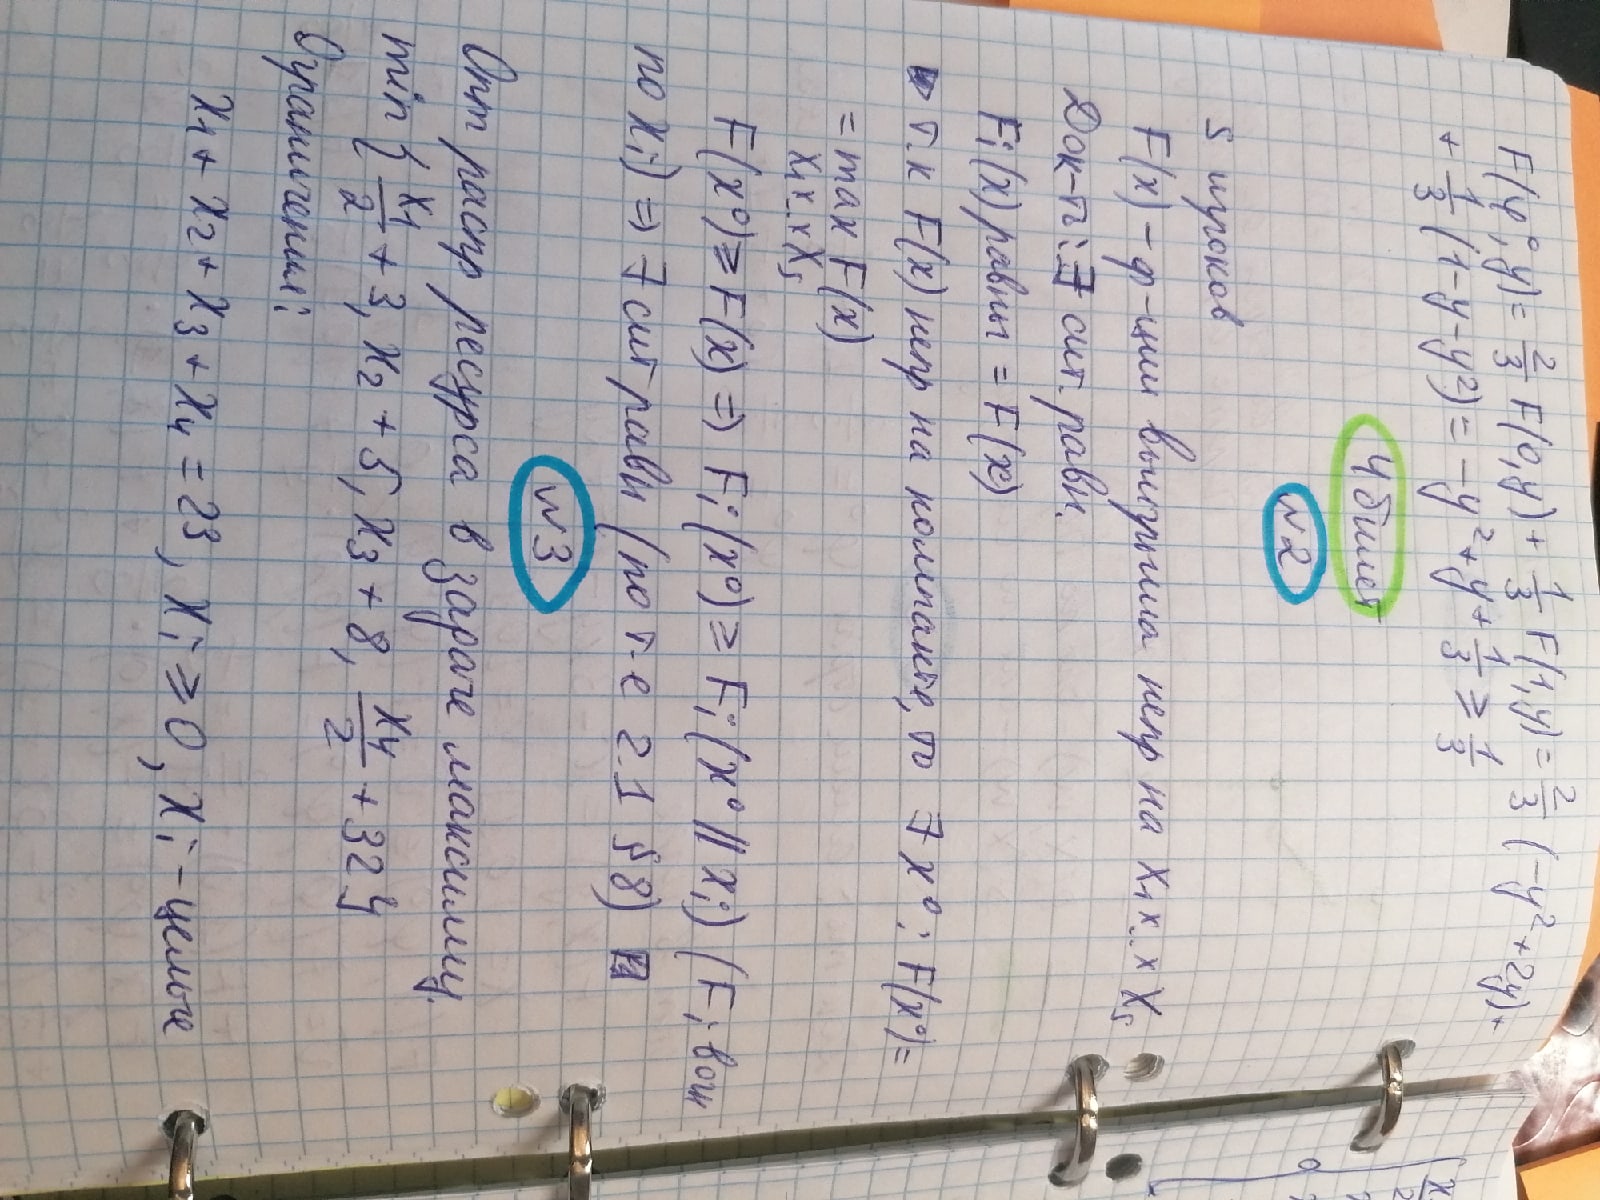 F(φ⁰, y) = 2/3 F(0, y) + 1/3 F(1, y) = 2/3 (-y² + 2y) +
+ 1/3 (1 - y - y²) = -y² + y + 1/3 ≥ 1/3
4 билет
№2
s игроков
F(x) - ф-ции выигрыша непр на X₁ x..x Xₛ
Док-ть: ∃ сит. равн.
Fᵢ(x) равны = F(x)
т.к F(x) непр на компакте, то ∃ x⁰: F(x⁰) =
= max F(x)
X₁x..xXₛ
F(x⁰) ≥ F(x) ⇒ Fᵢ(x⁰) ≥ Fᵢ(x⁰ || xᵢ) (Fᵢ вогн
по xᵢ) ⇒ ∃ сит равн (по т-е 2.1 §8)
№3
Опт распр ресурса в задаче максимину.
min { x₁/2 + 3, x₂ + 5, x₃ + 8, x₄/2 + 32 }
Ограничения:
x₁ + x₂ + x₃ + x₄ = 23, xᵢ ≥ 0, xᵢ - целые